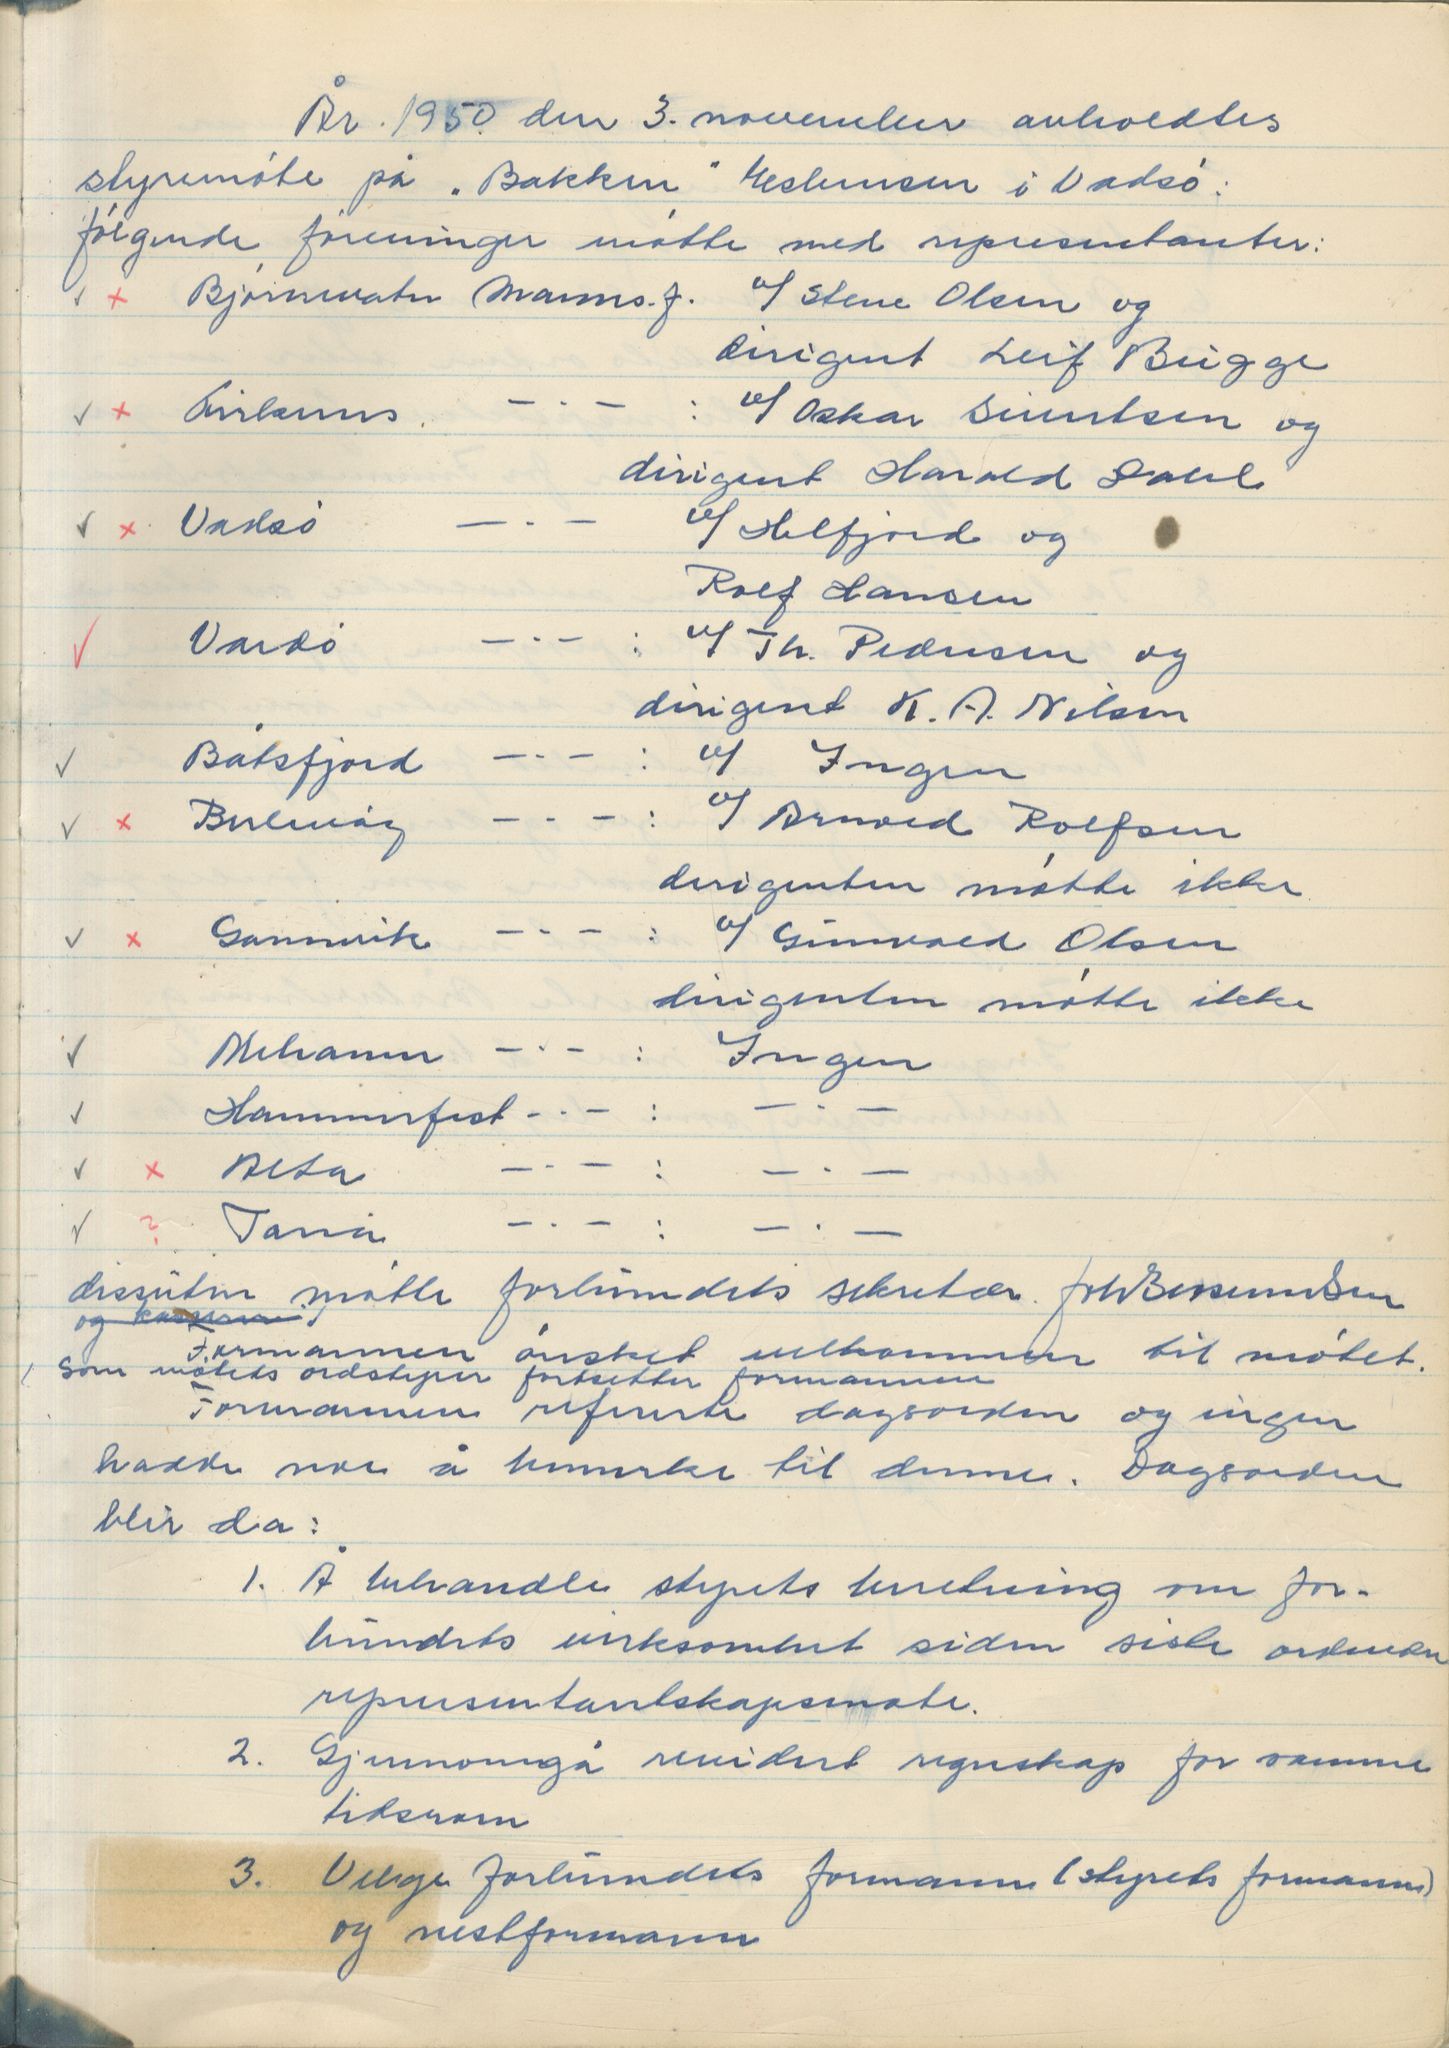 År 1950 den 3. november avholdtes
styremøte på „Bakken" i Vadsø:
følgende foreninger møtte med representanter:
✓ × Bjørnevatn Manns.f. v/ Stene Olsen og
dirigent Leif Bugge
✓ × Kirkenes — . — : v/ Oskar Sivertsen og
dirigent Harald Dahl
✓ × Vadsø — . — v/ Helfjord og
Rolf Hansen
✓ Vardø — . — : v/ Th. Pedersen og
dirigent K. A. Nilsen
✓ Båtsfjord — . — : v/ Ingen
✓ × Berlevåg — . — : v/ Arnold Rolfsen
dirigenten møtte ikke
✓ × Gamvik — . — : v/ Gunvald Olsen
dirigenten møtte ikke
✓ Mehamn — . — : Ingen
✓ Hammerfest — . — : — . —
✓ × Alta — . — : — . —
✓ ? Tana — . — : — . —
dessuten møtte forbundets sekretær
og kasserer
Formannen ønsket velkommen til møtet.
Som møtets ordstyrer fortsetter formannen
Formannen refererte dagsorden og ingen
hadde noe å bemerke til denne. Dagsorden
blir da:
1. Å behandle styrets beretning om for-
bundets virksomhet siden siste ordinære
representantskapsmøte.
2. Gjennomgå revidert regnskap for samme
tidsrom
3. Velge forbundets formann (styrets formann)
og nestformann